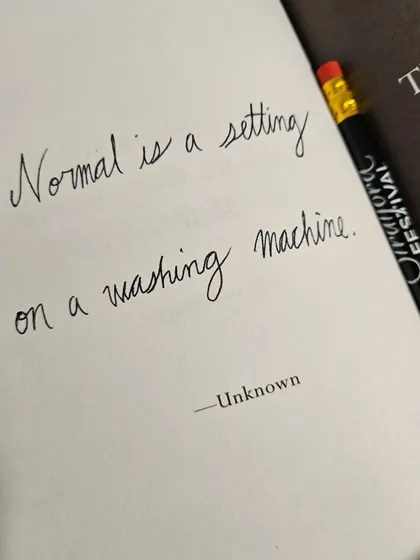 Normal is a setting
on a washing machine.
—Unknown
T
FESTIVAL